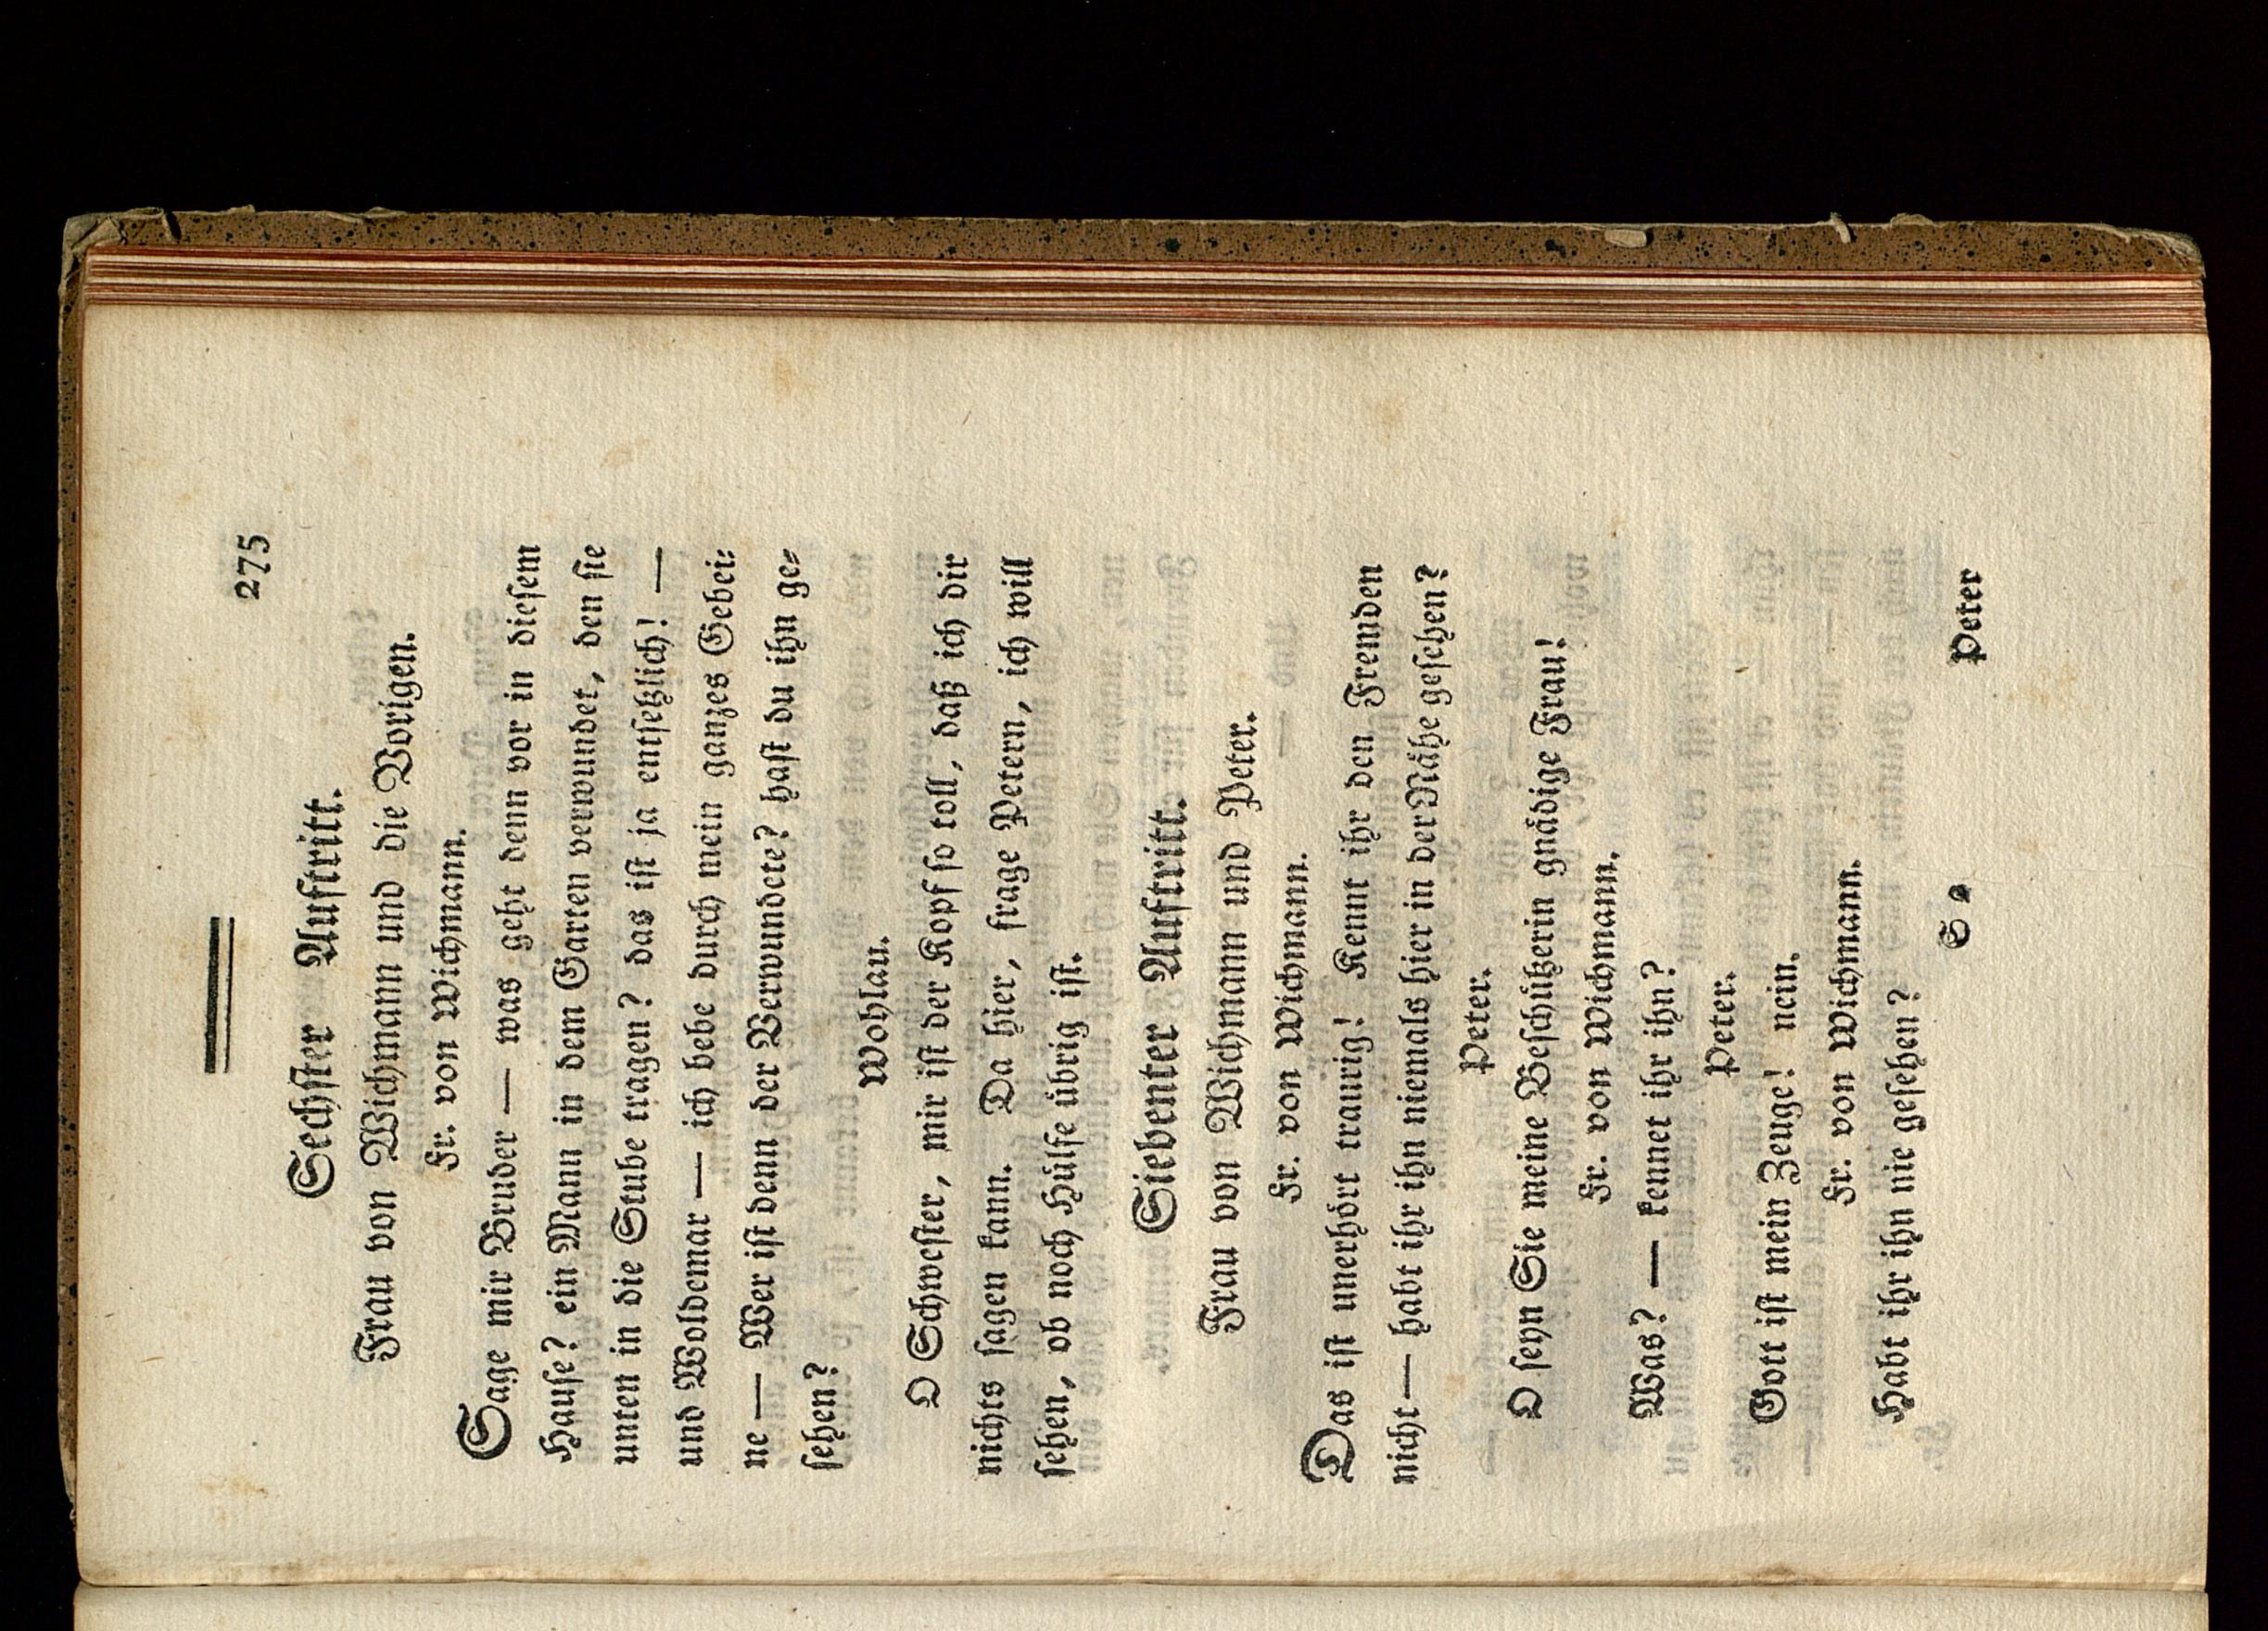 275
Sechſter Auftritt.
Frau von Wichmann und die Vorigen.
Fr. von Wichmann.
Sage mir Bruder — was geht denn vor in dieſem
Hauſe? ein Mann in dem Garten verwundet, den ſie
unten in die Stube tragen? das iſt ja entſetzlich! —
und Woldemar — ich bebe durch mein ganzes Gebei⸗
ne — Wer iſt denn der Verwundete? haſt du ihn ge⸗
ſehen?
Wohlau.
O Schweſter, mir iſt der Kopf ſo toll, daß ich dir
nichts ſagen kann. Da hier, frage Petern, ich will
ſehen, ob noch Hülfe übrig iſt.
Siebenter Auftritt.
Frau von Wichmann und Peter.
Fr. von Wichmann.
Das iſt unerhört traurig! Kennt ihr den Fremden
nicht — habt ihr ihn niemals hier in der Nähe geſehen?
Peter.
O ſeyn Sie meine Beſchützerin gnädige Frau!
Fr. von Wichmann.
Was? — kennet ihr ihn?
Peter.
Gott iſt mein Zeuge! nein.
Fr. von Wichmann.
Habt ihr ihn nie geſehen?
S 2
Peter